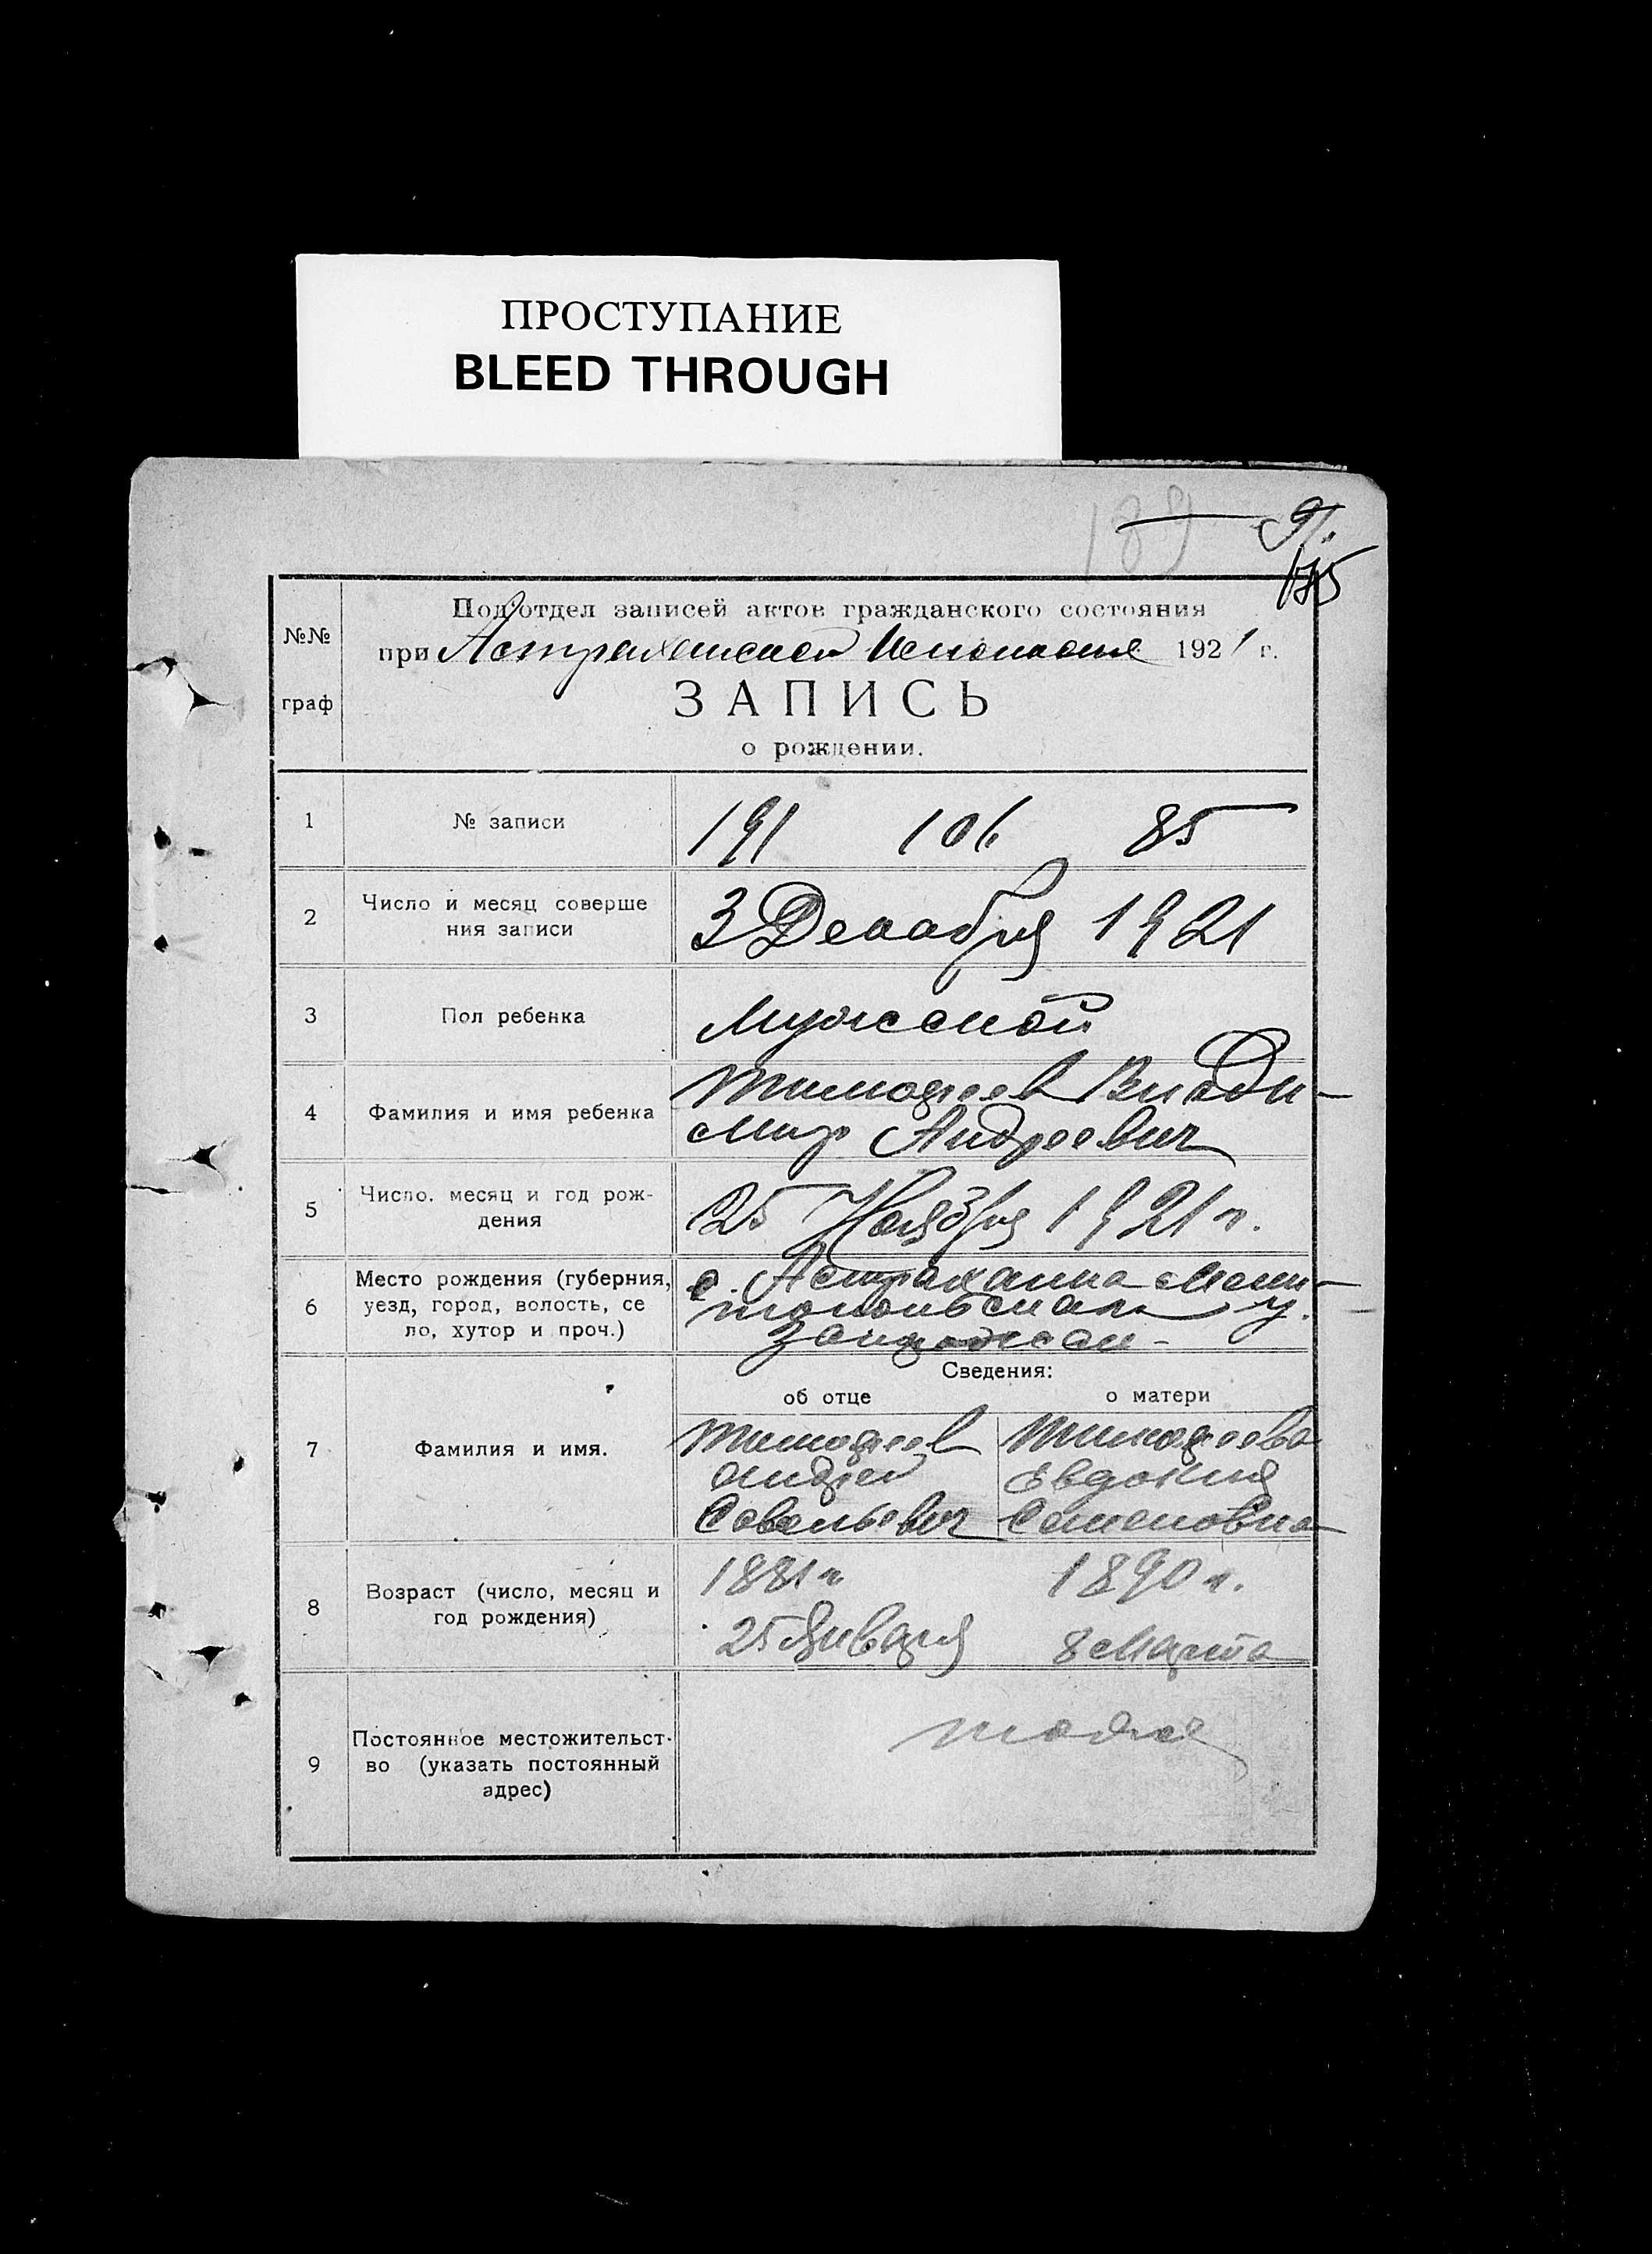 ПРОСТУПАНИЕ
BLEED THROUGH
189 91.
Подотдел записей актов гражданского состояния
№№ при Астраханском Исполкоме 1921 г.
граф ЗАПИСЬ
о рождении.
1 № записи 191 106 85
2 Число и месяц соверше
ния записи 3 Декабря 1921
3 Пол ребенка Мужской
4 Фамилия и имя ребенка Тимофеев Влади-
мир Андреевич
5 Число, месяц и год рож-
дения 25 Ноября 1921 г.
6 Место рождения (губерния,
уезд, город, волость, се
ло, хутор и проч.) с. Астраханка Мели-
топольскаго у.
Сведения:
об отце о матери
7 Фамилия и имя. Тимофеев Тимофеева
Андрей Евдокия
Савельевич Семеновна
8 Возраст (число, месяц и
год рождения) 1881 г 1890 г.
25 Января 8 Марта
9 Постоянное местожительст-
во (указать постоянный
адрес) тоже